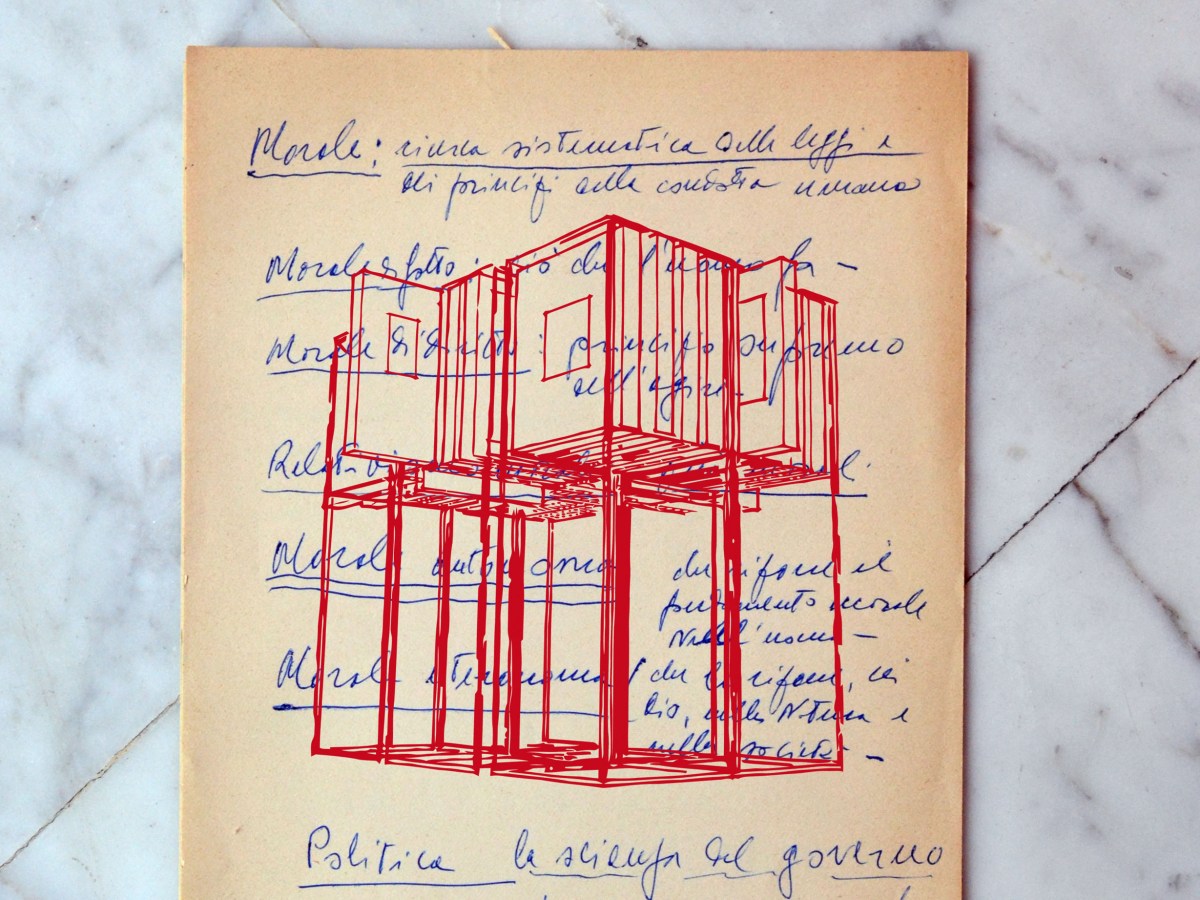 Morale: ricerca sistematica delle leggi e
di principi della condotta umana
Morale di fatto: ciò che l'uomo fa -
Morale di diritto: principio supremo
dell'agire -
morale
Morale autonoma che rifonde il
fondamento morale
Nell'uomo -
Morale eteronoma che lo rifonde, in
Dio, nella Natura e
nella società -
Politica la scienza del governo